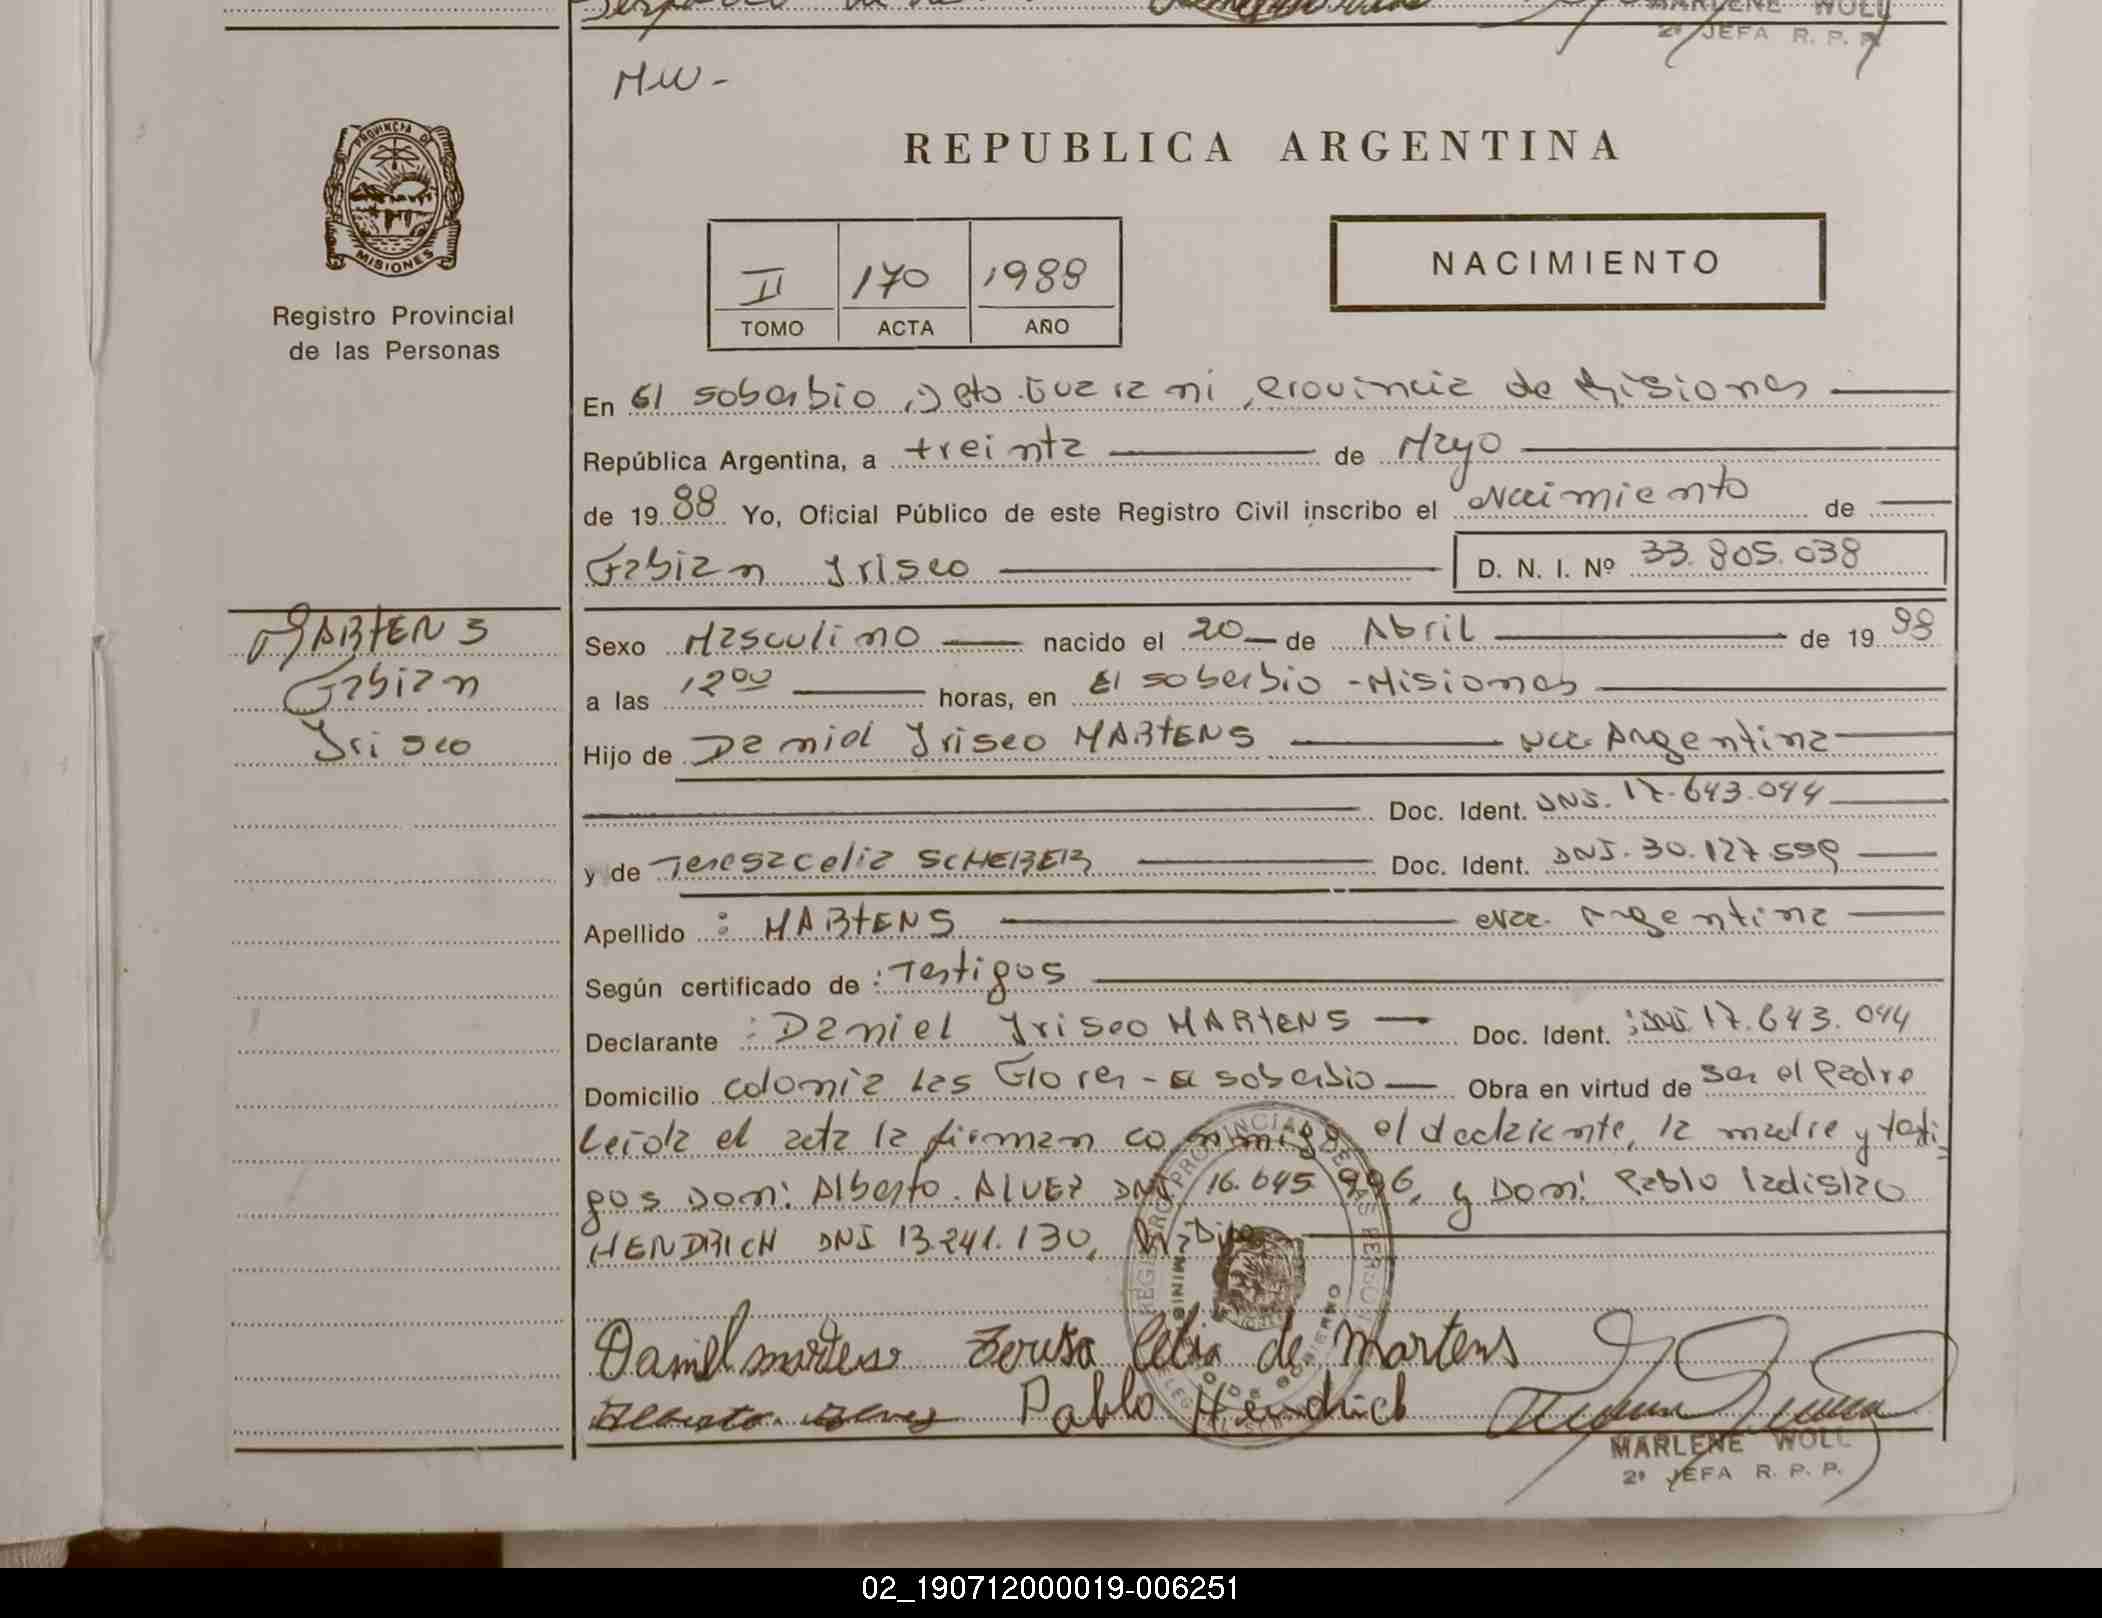 MARLENE WOLL
2º JEFA R. P. P.
MW-
PROVINCIA DE MISIONES
Registro Provincial
de las Personas
REPUBLICA ARGENTINA
NACIMIENTO
II 170 1988
TOMO ACTA AÑO
En El Soberbio, Dto. Guarani, Provincia de Misiones
República Argentina, a treinta de Mayo
de 1988 Yo, Oficial Público de este Registro Civil inscribo el Nacimiento de
Fabian Iriseo D. N. I. Nº 33.805.038
MARTENS
Fabian
Iriseo
Sexo Masculino nacido el 20 de Abril de 1988
a las 12 00 horas, en El Soberbio - Misiones
Hijo de Daniel Iriseo MARTENS Nac. Argentina
Doc. Ident. DNI. 17.643.044
y de Teresa Celia SCHERER Doc. Ident. DNI. 30.127.599
Apellido : MARTENS Nac. Argentina
Según certificado de : Testigos
Declarante : Daniel Iriseo MARTENS Doc. Ident. : DNI 17.643.044
Domicilio Colonia Las Flores - El Soberbio Obra en virtud de Ser el Padre
Leida el acta la firman conmigo, el declarante, la madre y testi
gos Don: Alberto. ALVEZ DNI 16.645.996, y Don: Pablo Ladislao
HENDRICH DNI 13.241.130,
Daniel martens Teresa Celia de Martens
Alberto Alvez Pablo Hendrich
MARLENE WOLL
2º JEFA R. P. P.
02_190712000019-006251